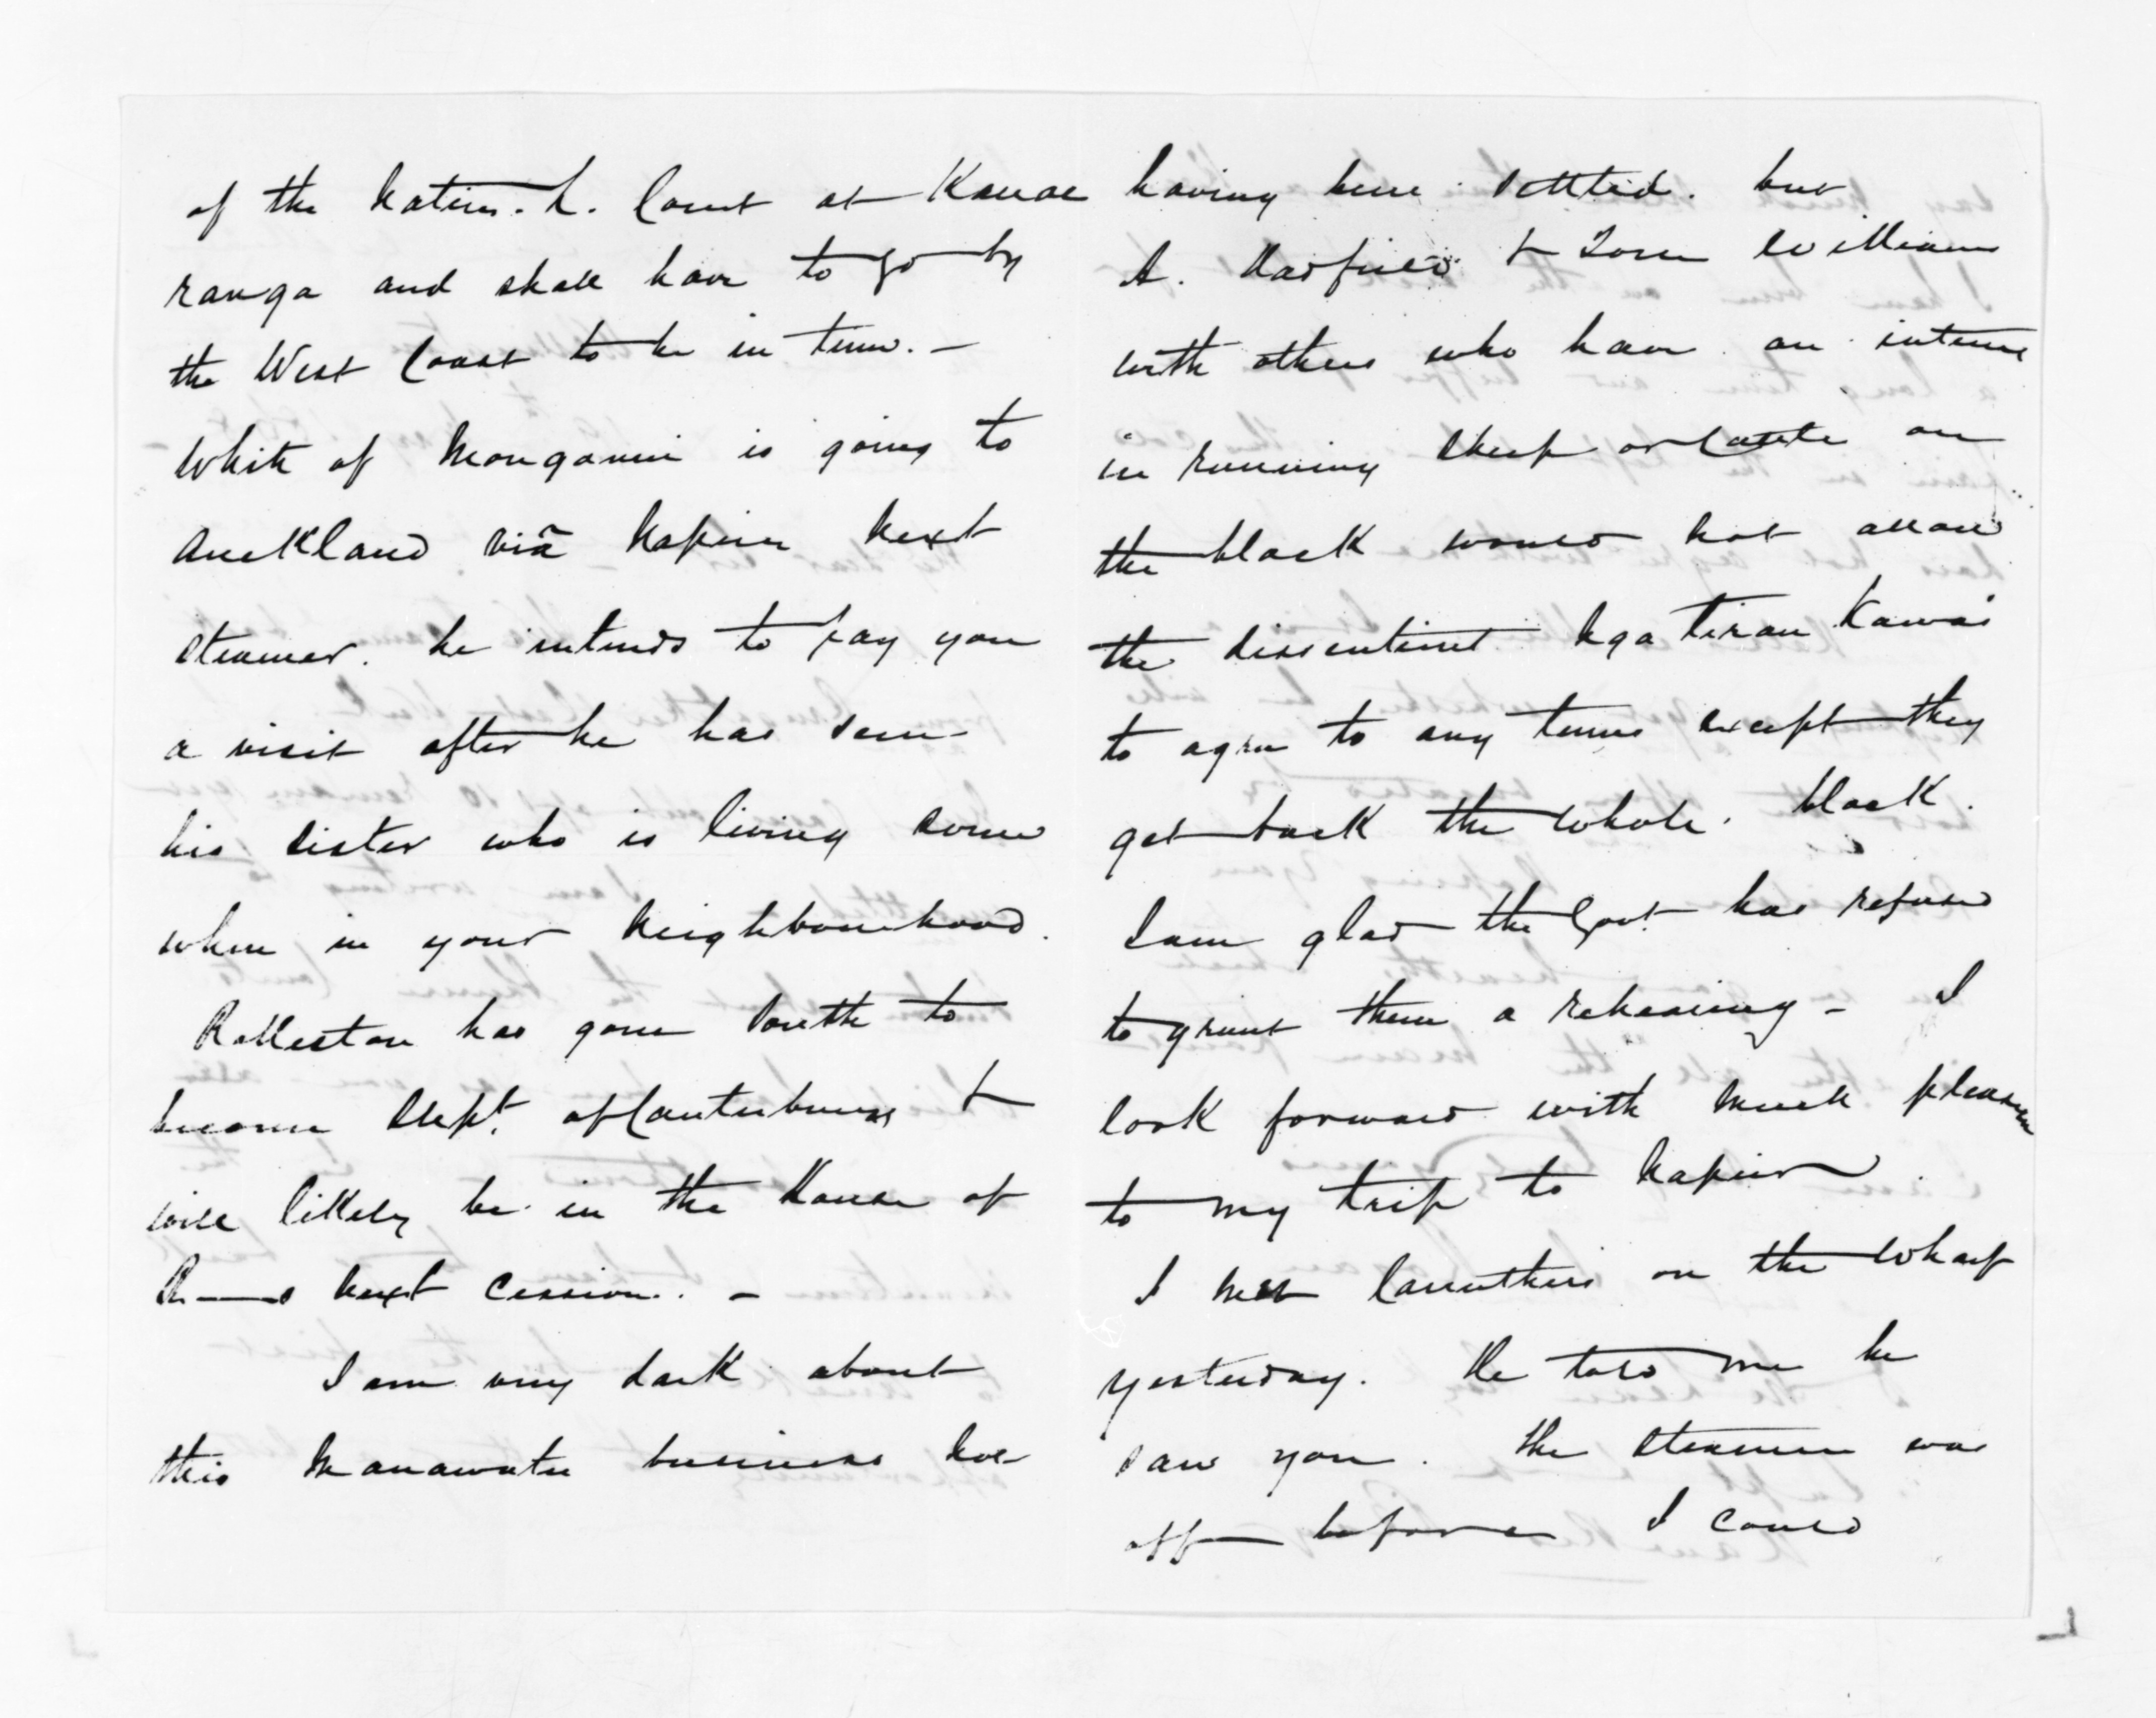 of the Native. L. Court at Kauae
ranga and shall have to go by
the West Coast to be in time. –
White of Mongonui is going to
Auckland viâ Napier next
steamer. he intends to pay you
a visit after he has seen
his sister who is living some
where in your neighbourhood.
Rolleston has gone South to
become Supt. of Canterbury &
will likely be in the House of
R——s next Cession. –
I am very dark about
this Manawatu business not
having been settled. but
A. Hadfield & Tom Williams
with others who have an interest
in running sheep or Cattle on
the block would not allow
the dissentient Nga tirau Kawa
to agree to any terms except they
get back the whole. block.
I am glad the Govt. has refused
to grant them a rehearing – I
look forward with much pleasure
to my trip to Napier.
I met Carruthers on the Wharf
yesterday. He told me he
saw you. the steamer was
off before I could